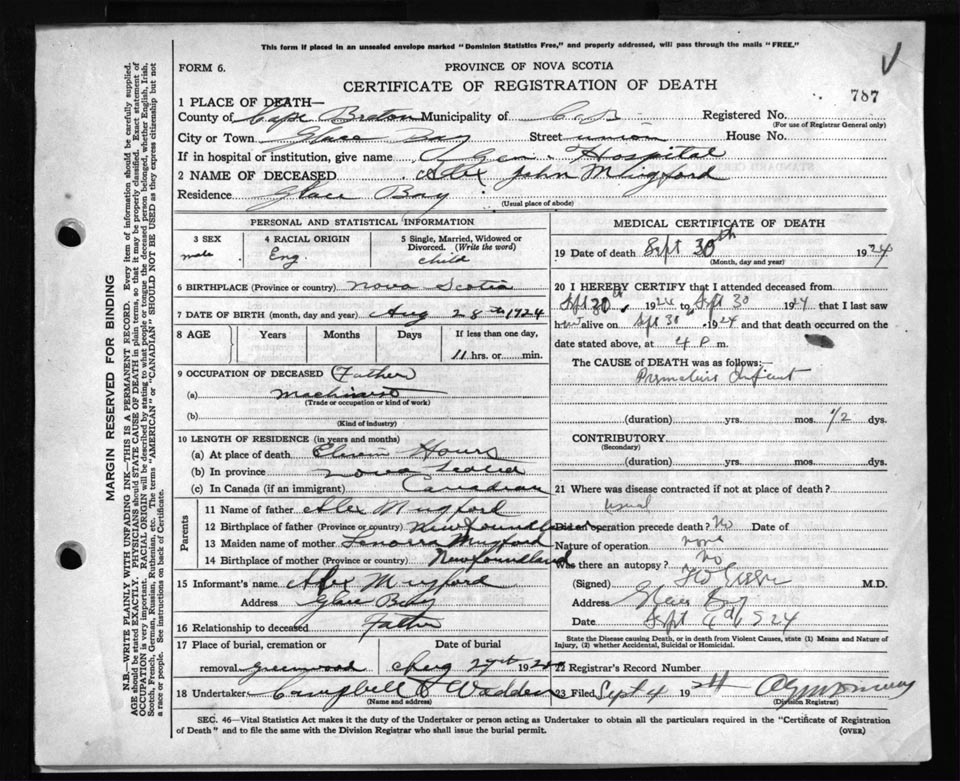 This form if placed in an unsealed envelope marked "Dominion Statistics Free," and properly addressed, will pass through the mails "FREE."
FORM 6.
PROVINCE OF NOVA SCOTIA
CERTIFICATE OF REGISTRATION OF DEATH
787
1 PLACE OF DEATH—
County of Cape Breton Municipality of C. B. Registered No.
(For use of Registrar General only)
City or Town Glace Bay Street union House No.
If in hospital or institution, give name Gen. Hospital
2 NAME OF DECEASED Alex John
Residence Glace Bay
(Usual place of abode)
PERSONAL AND STATISTICAL INFORMATION
3 SEX male
4 RACIAL ORIGIN Eng.
5 Single, Married, Widowed or Divorced. (Write the word) child
6 BIRTHPLACE (Province or country) Nova Scotia
7 DATE OF BIRTH (month, day and year) Aug 28th 1924
8 AGE Years Months Days If less than one day, 11 hrs. or min.
9 OCCUPATION OF DECEASED (Father)
(a) machinist
(Trade or occupation or kind of work)
(b)
(Kind of industry)
10 LENGTH OF RESIDENCE (in years and months)
(a) At place of death Eleven Hours
(b) In province Nova Scotia
(c) In Canada (if an immigrant) Canadian
Parents
11 Name of father Alex Mugford
12 Birthplace of father (Province or country) Newfoundland
13 Maiden name of mother Lenorra Mugford
14 Birthplace of mother (Province or country) Newfoundland
15 Informant's name Alex Mugford
Address Glace Bay
16 Relationship to deceased Father
17 Place of burial, cremation or removal Greenwood
Date of burial Aug 29th 1924
18 Undertaker Campbell & Wadden
(Name and address)
MEDICAL CERTIFICATE OF DEATH
19 Date of death Sept 30th 1924
(Month, day and year)
20 I HEREBY CERTIFY that I attended deceased from
Sept 30th, 1924 to Sept 30 1924 that I last saw
him alive on Sept 30, 1924 and that death occurred on
date stated above, at 4 P m.
The CAUSE OF DEATH was as follows:—
Premature Infant
(duration) yrs. mos. 1/2 dys.
CONTRIBUTORY
(Secondary)
(duration) yrs. mos. dys.
21 Where was disease contracted if not at place of death?
usual
Did an operation precede death? No Date of
Nature of operation none
Was there an autopsy? No
(Signed) M.D.
Address Glace Bay
Date Sept 4th 1924
State the Disease causing Death, or in death from Violent Causes, state (1) Means and Nature of Injury, (2) whether Accidental, Suicidal or Homicidal.
22 Registrar's Record Number
23 Filed Sept 4 1924
(Division Registrar)
SEC. 46—Vital Statistics Act makes it the duty of the Undertaker or person acting as Undertaker to obtain all the particulars required in the "Certificate of Registration
of Death" and to file the same with the Division Registrar who shall issue the burial permit.
(OVER)
MARGIN RESERVED FOR BINDING
N.B.—WRITE PLAINLY WITH UNFADING INK—THIS IS A PERMANENT RECORD. Every item of information should be carefully supplied.
AGE should be stated EXACTLY. PHYSICIANS should STATE CAUSE OF DEATH in plain terms, so that it may be properly classified. Exact statement of
OCCUPATION is very important. RACIAL ORIGIN will be described by stating to what people or tongue the deceased person belonged, whether English, Irish,
Scotch, French, German, Russian, Ruthenian, etc. The terms "AMERICAN" or "CANADIAN" SHOULD NOT BE USED as they express citizenship but not
a race or people. See instructions on back of Certificate.